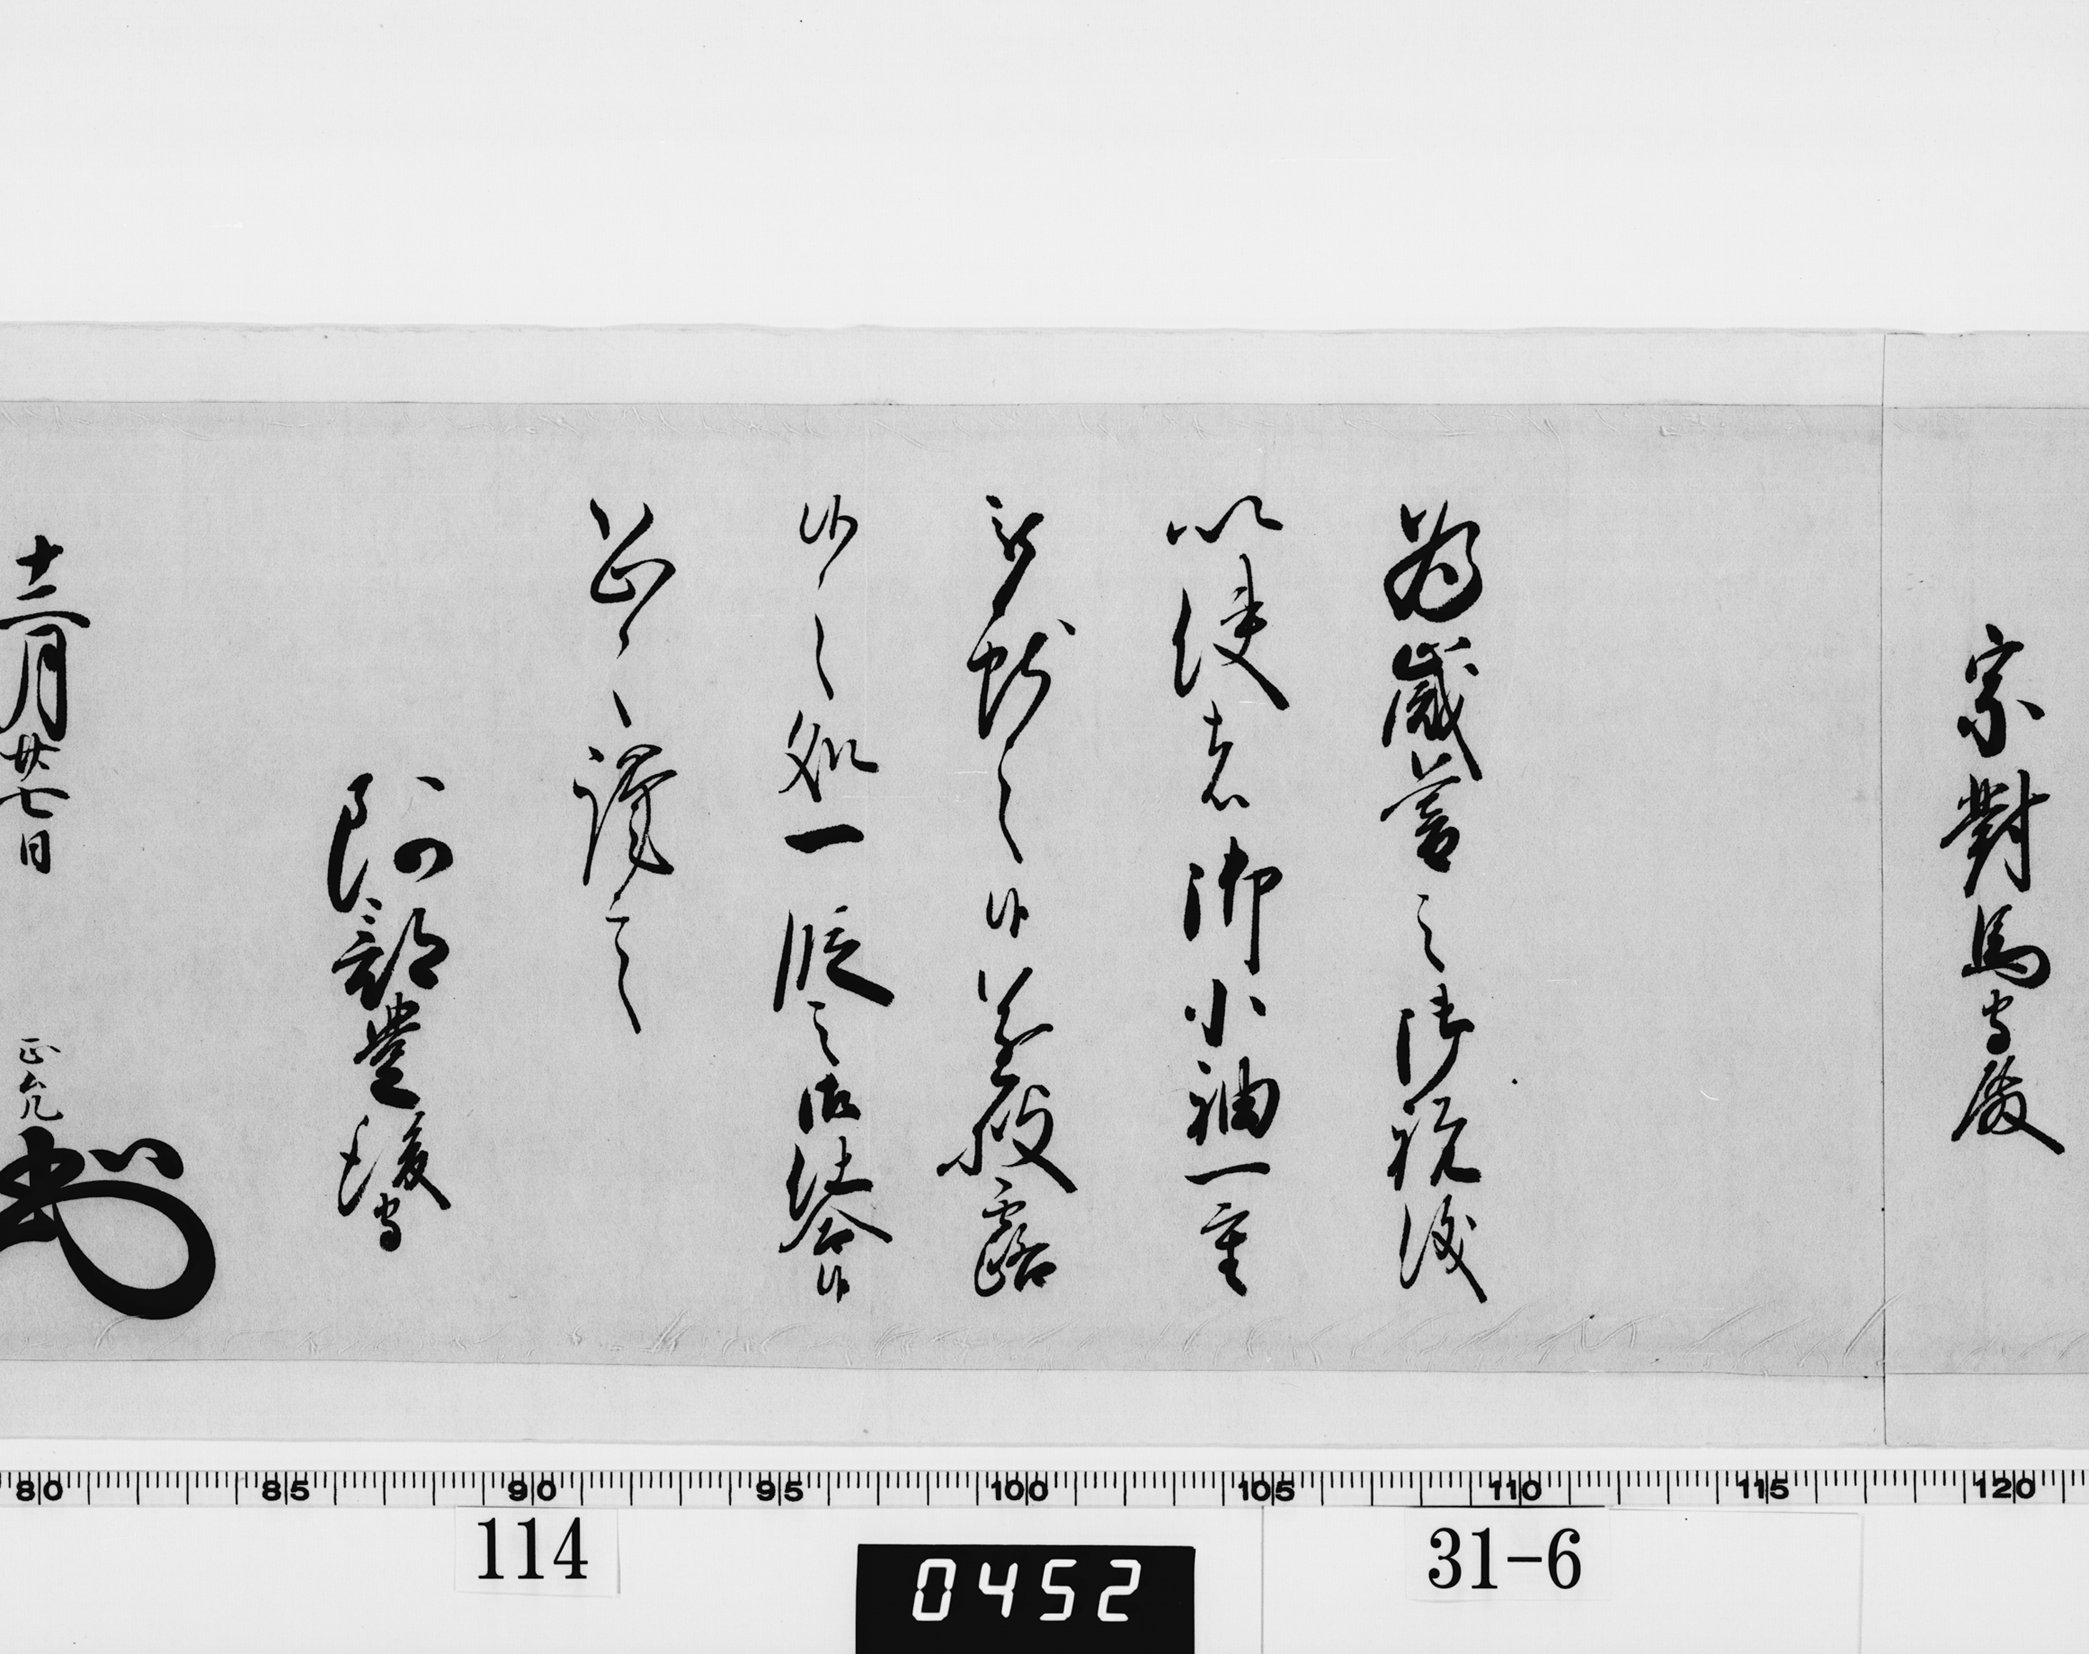 宗對馬守殿
為歳暮之御祝儀
以使者御小袖一重
被献之候遂披露
候之処一段之御仕合候
恐々謹言
阿部豊後守
十二月廿七日 正允
80 85 90 95 100 105 110 115 120
114
0452
31-6